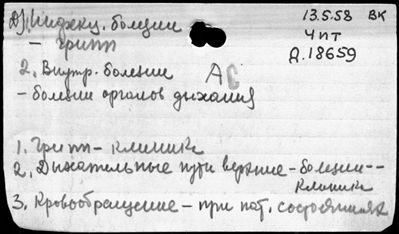 1. Инфекц. болезни
13.5.58 ВК
- Грипп
Чпт
Д.18659
2. Внутр. болезни
АС
- болезни органов дыхания
1. Грипп - клиника
2. Дыхательные пути верхние - болезни --
клиника
3. Кровообращение - при пат. состояниях